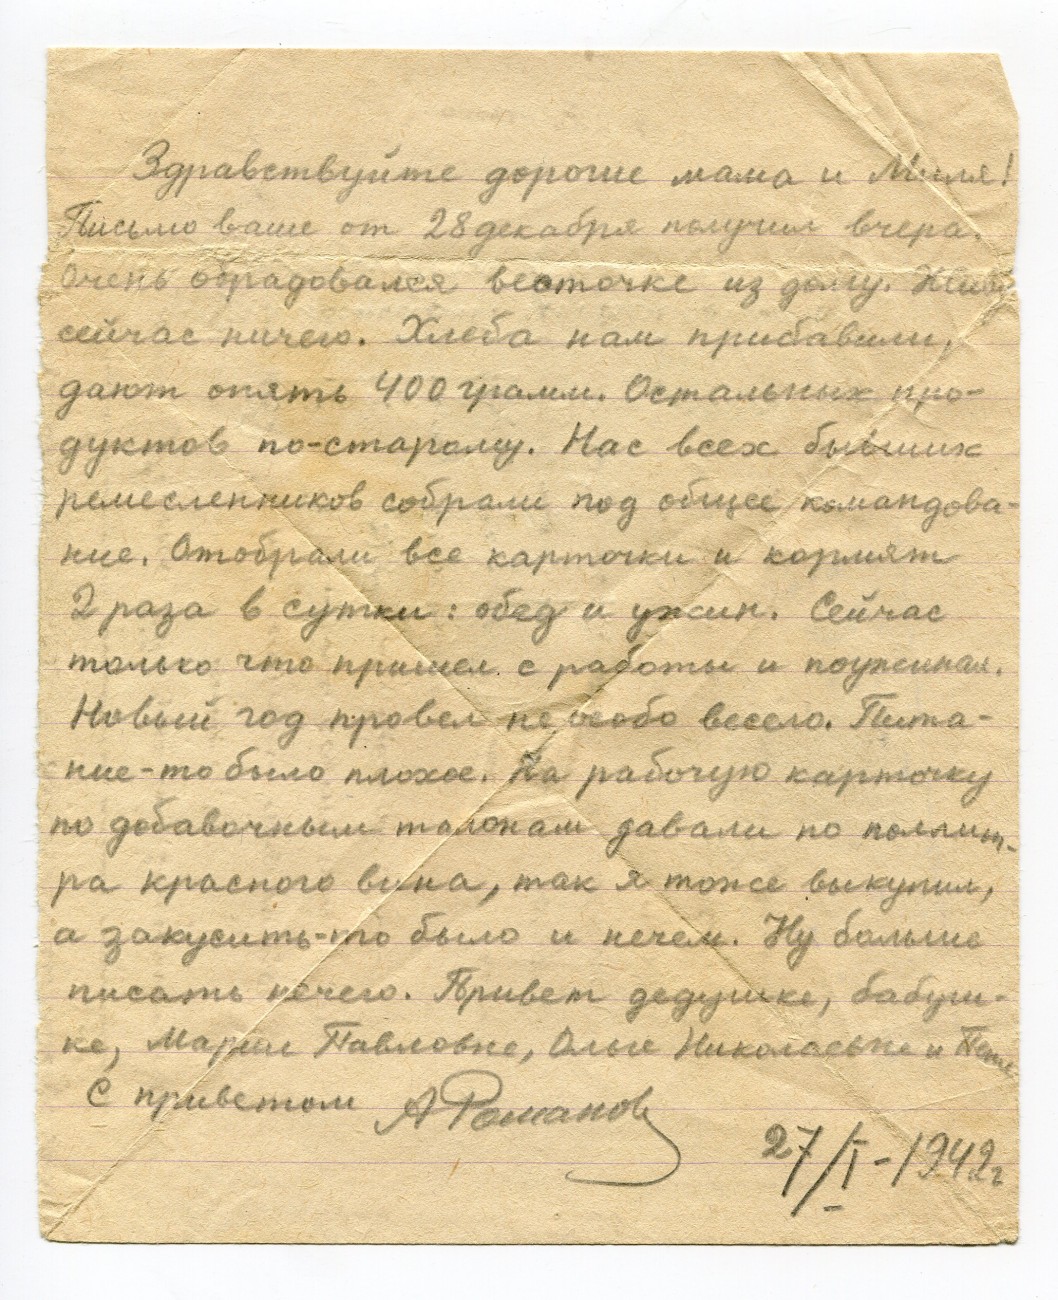 Здравствуйте дорогие мама и Миля!
Письмо ваше от 28 декабря получил вчера.
Очень обрадовался весточке из дому. Живу
сейчас ничего. Хлеба нам прибавили,
дают опять 400 грамм. Остальных про-
дуктов по-старому. Нас всех бывших
ремесленников собрали под общее командова-
ние. Отобрали все карточки и кормят
2 раза в сутки: обед и ужин. Сейчас
только что пришел с работы и поужинал.
Новый год провел не особо весело. Пита-
ние-то было плохое. На рабочую карточку
по добавочным талонам давали по поллит-
ра красного вина, так я тоже выкупил,
а закусить-то было и нечем. Ну больше
писать нечего. Привет дедушке, бабуш-
ке, Марии Павловне, Ольге Николаевне и
С приветом А Романов
27/I-1942г